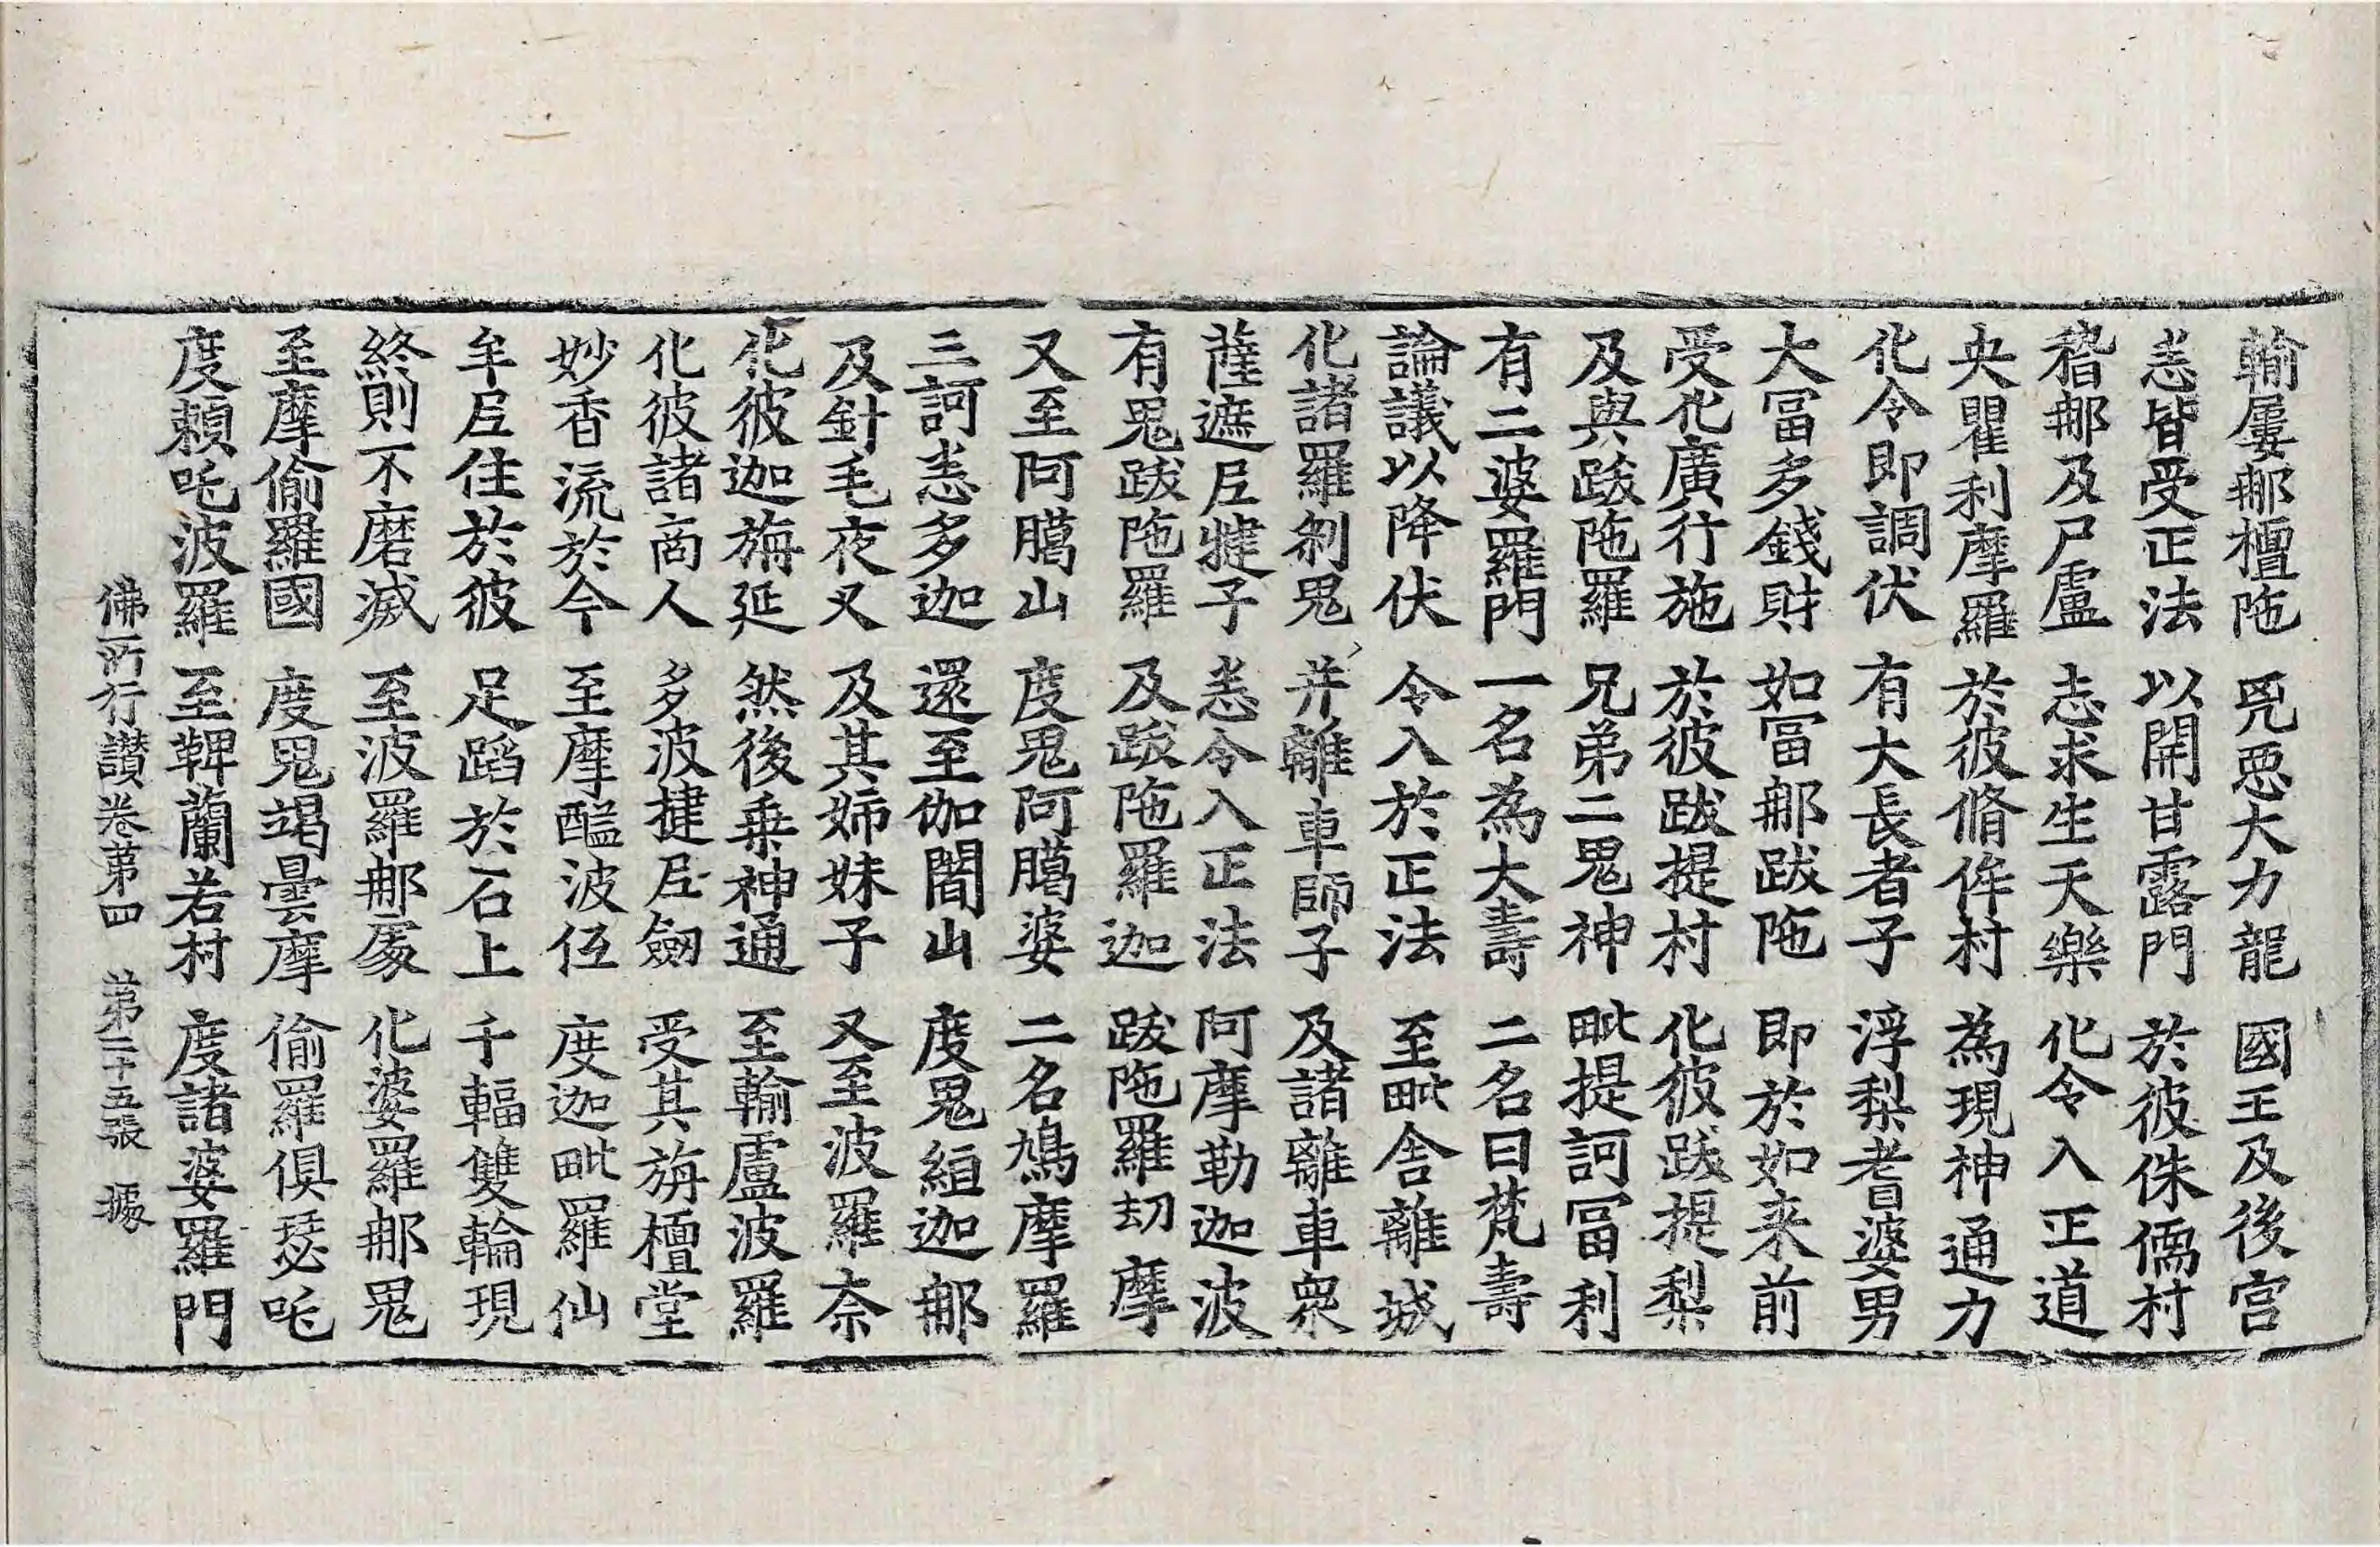 輸屢那檀陁 兇惡大力龍 國王及後宮
悉皆受正法 以開甘露門 於彼侏儒村
稽那及尸盧 志求生天樂 化令入正道
央瞿利摩羅 於彼脩侔村 為現神通力
化令即調伏 有大長者子 浮梨耆婆男
大冨多錢財 如冨那跋陁 即於如来前
受化廣行施 於彼跋提村 化彼跋提梨
及與跋陁羅 兄弟二鬼神 毗提訶冨利
有二婆羅門 一名為大壽 二名曰梵壽
論議以降伏 令入於正法 至毗舍離城
化諸羅剎鬼 并離車師子 及諸離車衆
薩遮尼犍子 悉令入正法 阿摩勒迦波
有鬼跋陁羅 及跋陁羅迦 跋陁羅劫摩
又至阿臈山 度鬼阿臈婆 二名鳩摩羅
三訶悉多迦 還至伽闍山 度鬼絙迦那
及針毛夜叉 及其姉妹子 又至波羅奈
化彼迦旃延 然後乗神通 至輸盧波羅
化彼諸商人 多波揵尼劒 受其旃檀堂
妙香流於今 至摩醯波低 度迦毗羅仙
牟尼住於彼 足蹈於石上 千輻雙輪現
終則不磨滅 至波羅那處 化婆羅那鬼
至摩偷羅國 度鬼竭曇摩 偷羅俱瑟吒
度賴吒波羅 至鞞蘭若村 度諸婆羅門
佛所行讚卷第四 第二十五張 據